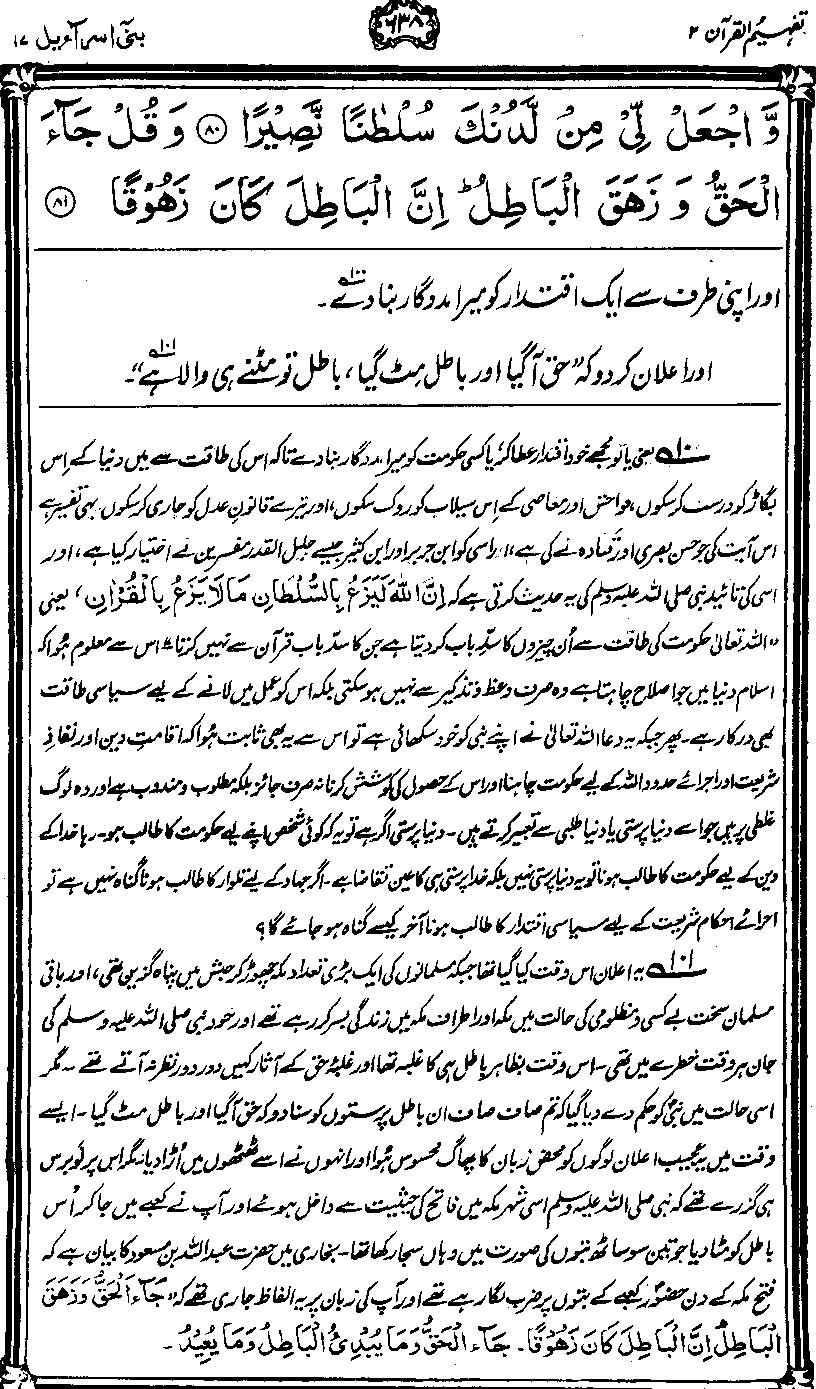 تفہیم القرآن ۲
۶۳۸
بنی اسرآءیل ۱۷
وَّ اجْعَلْ لِّیْ مِنْ لَّدُنْكَ سُلْطٰنًا نَّصِیْرًا ﴿۸۰﴾ وَ قُلْ جَآءَ
الْحَقُّ وَ زَهَقَ الْبَاطِلُ ؕ اِنَّ الْبَاطِلَ كَانَ زَهُوْقًا ﴿۸۱﴾
اور اپنی طرف سے ایک اقتدار کو میرا مددگار بنا دے۱۰۰۔
اور اعلان کر دو کہ ”حق آگیا اور باطل مِٹ گیا، باطل تو مٹنے ہی والا ہے۱۰۱“۔
۱۰۰ یعنی یا تو مجھے خود اقتدار عطا کر یا کسی حکومت کو میرا مددگار بنا دے تاکہ اس کی طاقت سے میں دنیا کے اِس
بگاڑ کو درست کر سکوں، فواحش اور معاصی کے اِس سیلاب کو روک سکوں، اور تیرے قانونِ عدل کو جاری کر سکوں۔ یہی تفسیر ہے
اس آیت کی جو حسن بصری اور قَتادہ نے کی ہے، اور اسی کو ابن جریر اور ابن کثیر جیسے جلیل القدر مفسرین نے اختیار کیا ہے، اور
اسی کی تائید نبی صلی اللہ علیہ وسلم کی یہ حدیث کرتی ہے کہ اِنَّ اللّٰهَ لَیَزَعُ بِالسُّلْطَانِ مَا لَا یَزَعُ بِالْقُرْاٰنِ، یعنی
”اللہ تعالیٰ حکومت کی طاقت سے اُن چیزوں کا سدِّ باب کر دیتا ہے جن کا سدِّ باب قرآن سے نہیں کرتا“۔ اس سے معلوم ہُوا کہ
اسلام دنیا میں جو اصلاح چاہتا ہے وہ صرف وعظ و تذکیر سے نہیں ہو سکتی بلکہ اس کو عمل میں لانے کے لیے سیاسی طاقت
بھی درکار ہے۔ پھر جبکہ یہ دعا اللہ تعالیٰ نے اپنے نبی کو خود سکھائی ہے تو اس سے یہ بھی ثابت ہُوا کہ اقامتِ دین اور نفاذِ
شریعت اور اجرائے حدود اللہ کے لیے حکومت چاہنا اور اس کے حصول کی کوشش کرنا نہ صرف جائز بلکہ مطلوب و مندوب ہے اور وہ لوگ
غلطی پر ہیں جو اسے دنیا پرستی یا دنیا طلبی سے تعبیر کرتے ہیں۔ دنیا پرستی اگر ہے تو یہ کہ کوئی شخص اپنے لیے حکومت کا طالب ہو۔ رہا خدا کے
دین کے لیے حکومت کا طالب ہونا تو یہ دنیا پرستی نہیں بلکہ خدا پرستی ہی کا عین تقاضا ہے۔ اگر جہاد کے لیے تلوار کا طالب ہونا گناہ نہیں ہے تو
اجرائے احکام شریعت کے لیے سیاسی اقتدار کا طالب ہونا آخر کیسے گناہ ہو جائے گا؟
۱۰۱ یہ اعلان اس وقت کیا گیا تھا جبکہ مسلمانوں کی ایک بڑی تعداد مکہ چھوڑ کر حبش میں پناہ گزین تھی، اور باقی
مسلمان سخت بے کسی و مظلومی کی حالت میں مکہ اور اطراف مکہ میں زندگی بسر کر رہے تھے اور خود نبی صلی اللہ علیہ وسلم کی
جان ہر وقت خطرے میں تھی۔ اس وقت بظاہر باطل ہی کا غلبہ تھا اور غلبۂ حق کے آثار کہیں دور دور نظر نہ آتے تھے۔ مگر
اسی حالت میں نبیؐ کو حکم دے دیا گیا کہ تم صاف صاف ان باطل پرستوں کو سنا دو کہ حق آگیا اور باطل مٹ گیا۔ ایسے
وقت میں یہ عجیب اعلان لوگوں کو محض زبان کا پھاگ محسوس ہُوا اور انہوں نے اسے ٹھٹھوں میں اُڑا دیا۔ مگر اس پر نو برس
ہی گزرے تھے کہ نبی صلی اللہ علیہ وسلم اسی شہر مکہ میں فاتح کی حیثیت سے داخل ہوئے اور آپ نے کعبے میں جا کر اُس
باطل کو مٹا دیا جو تین سو ساٹھ بتوں کی صورت میں وہاں سجا رکھا تھا۔ بخاری میں حضرت عبداللہ بن مسعود کا بیان ہے کہ
فتح مکہ کے دن حضورؐ کعبے کے بتوں پر ضرب لگا رہے تھے اور آپ کی زبان پر یہ الفاظ جاری تھے کہ ”جَآءَ الْحَقُّ وَ زَهَقَ
الْبَاطِلُ اِنَّ الْبَاطِلَ كَانَ زَهُوْقًا۔ جَآءَ الْحَقُّ وَمَا یُبْدِئُ الْبَاطِلُ وَمَا یُعِیْدُ۔